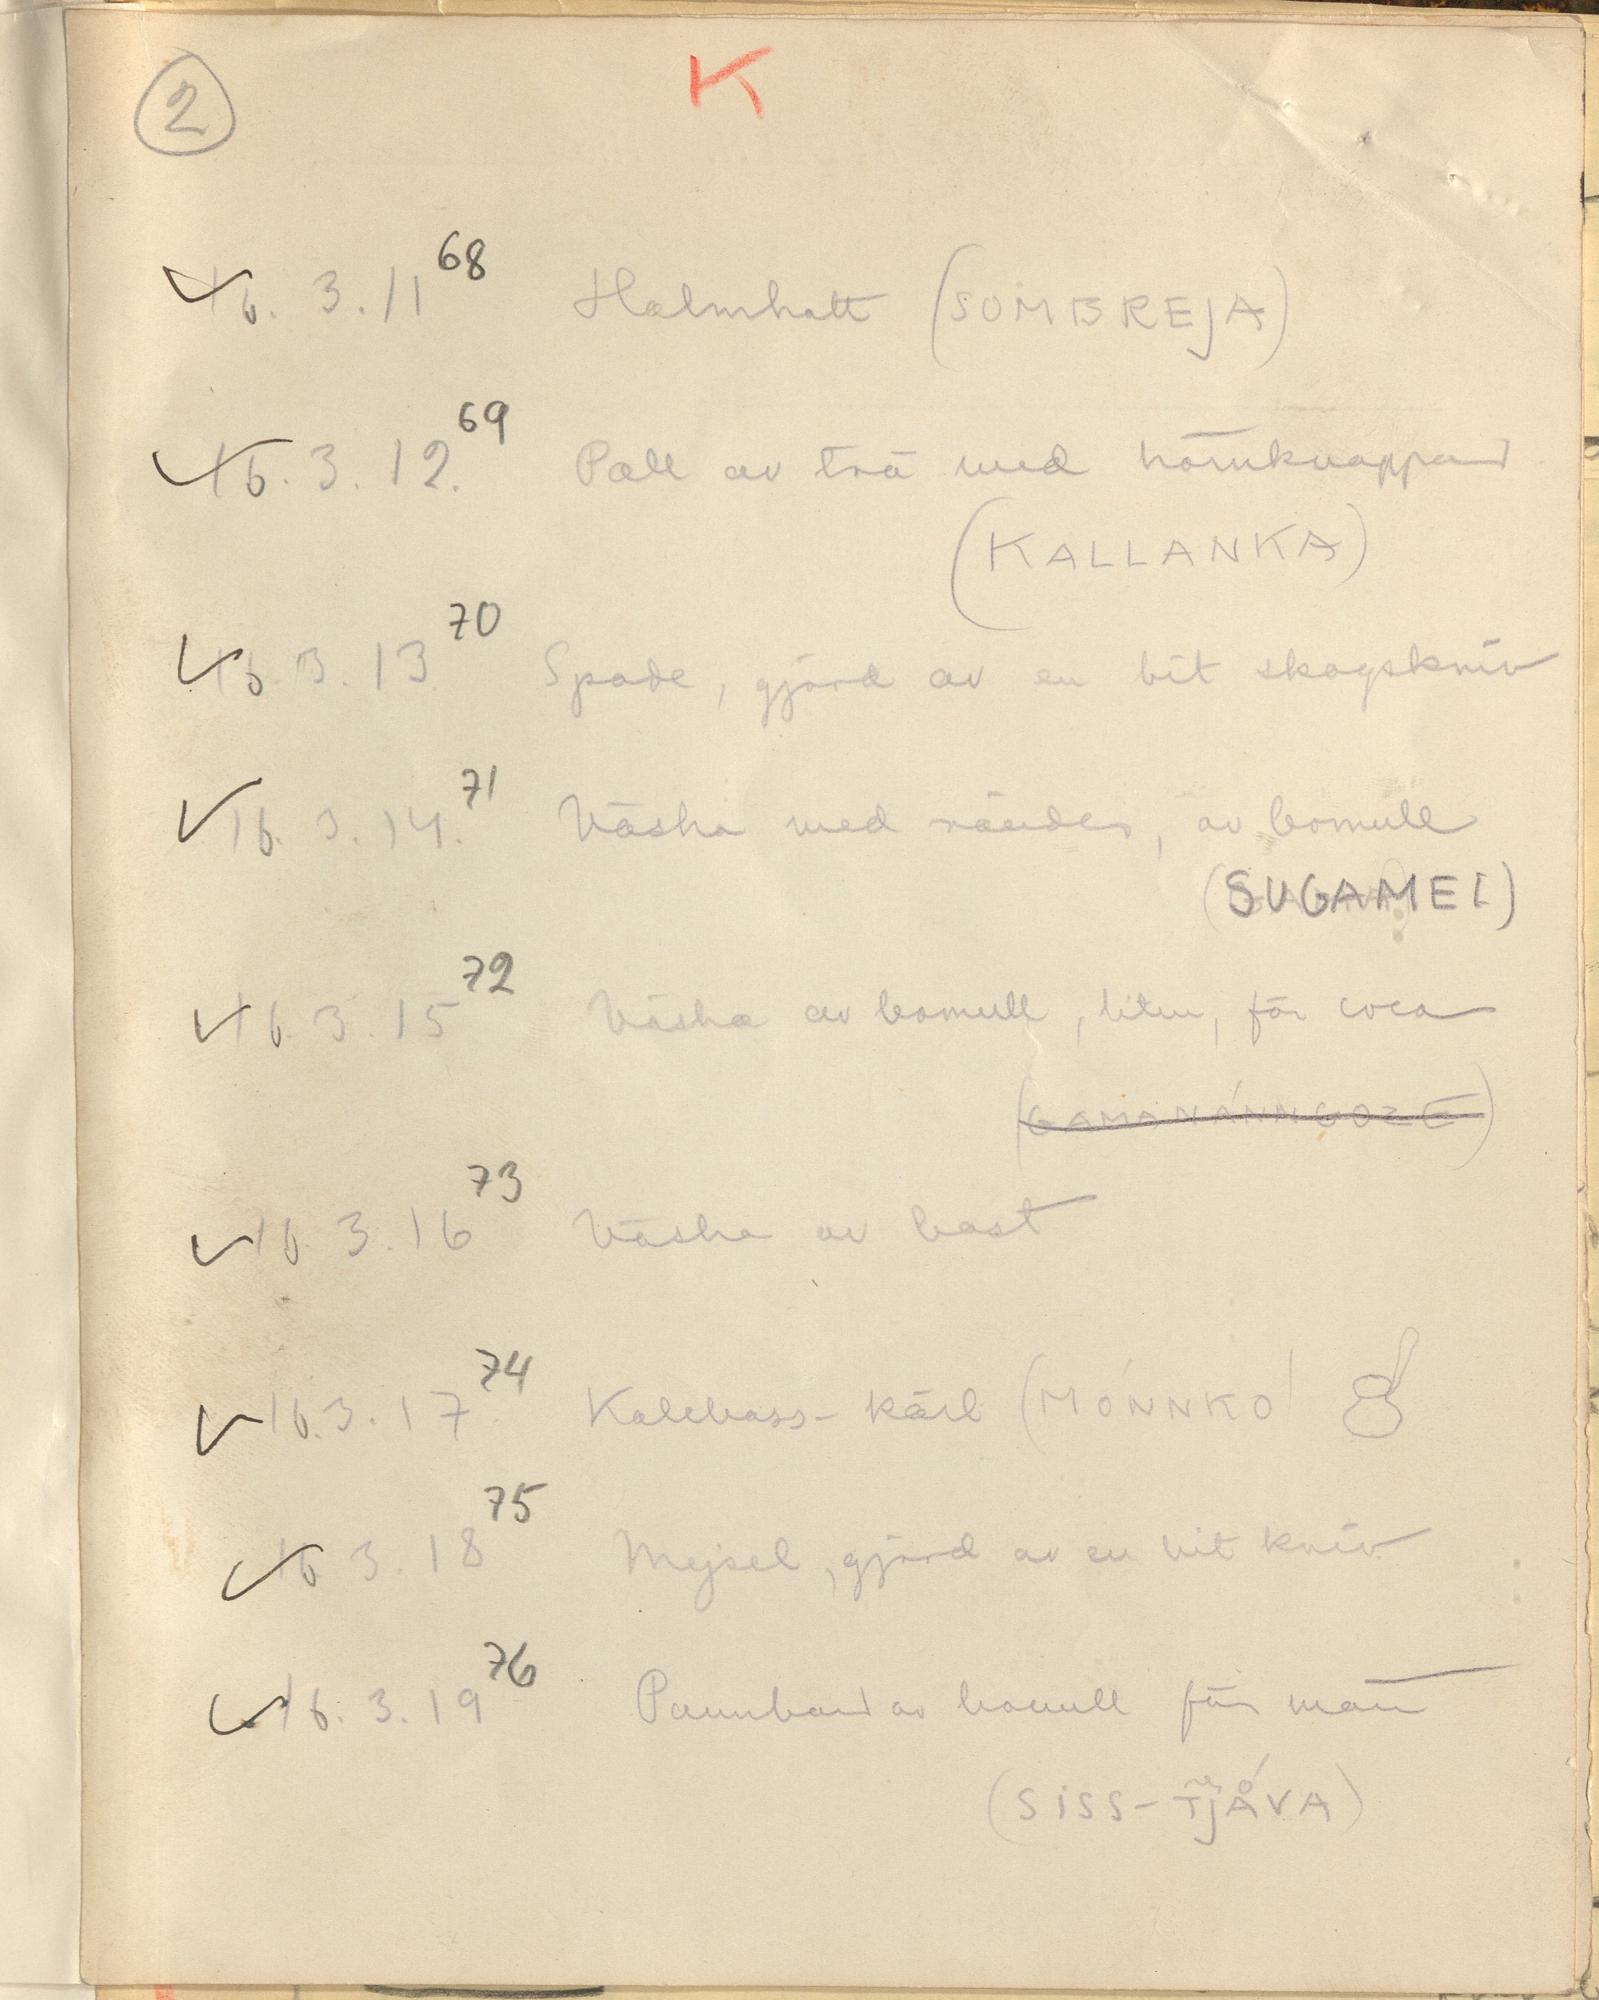 2
K
16. 3. 11 68 Halmhatt (SOMBREJA)
16. 3. 12. 69 Pall av trä med hörnknappar
(KALLANKA)
16. 3. 13 70 Spade, gjord av en bit skogskniv
16. 3. 14. 71 Väska med ränder, av bomull
(SUGAMEI)
16. 3. 15 72 Väska av bomull, liten, för coca
(GAMANÁNNGOZE)
16. 3. 16 73 Väska av bast
16. 3. 17 74 Kalebass-kärl (MÓNNKO)
16. 3. 18 75 Mejsel, gjord av en bit kniv
16. 3. 19 76 Pannband av bomull för män
(SISS-TJÅVA)